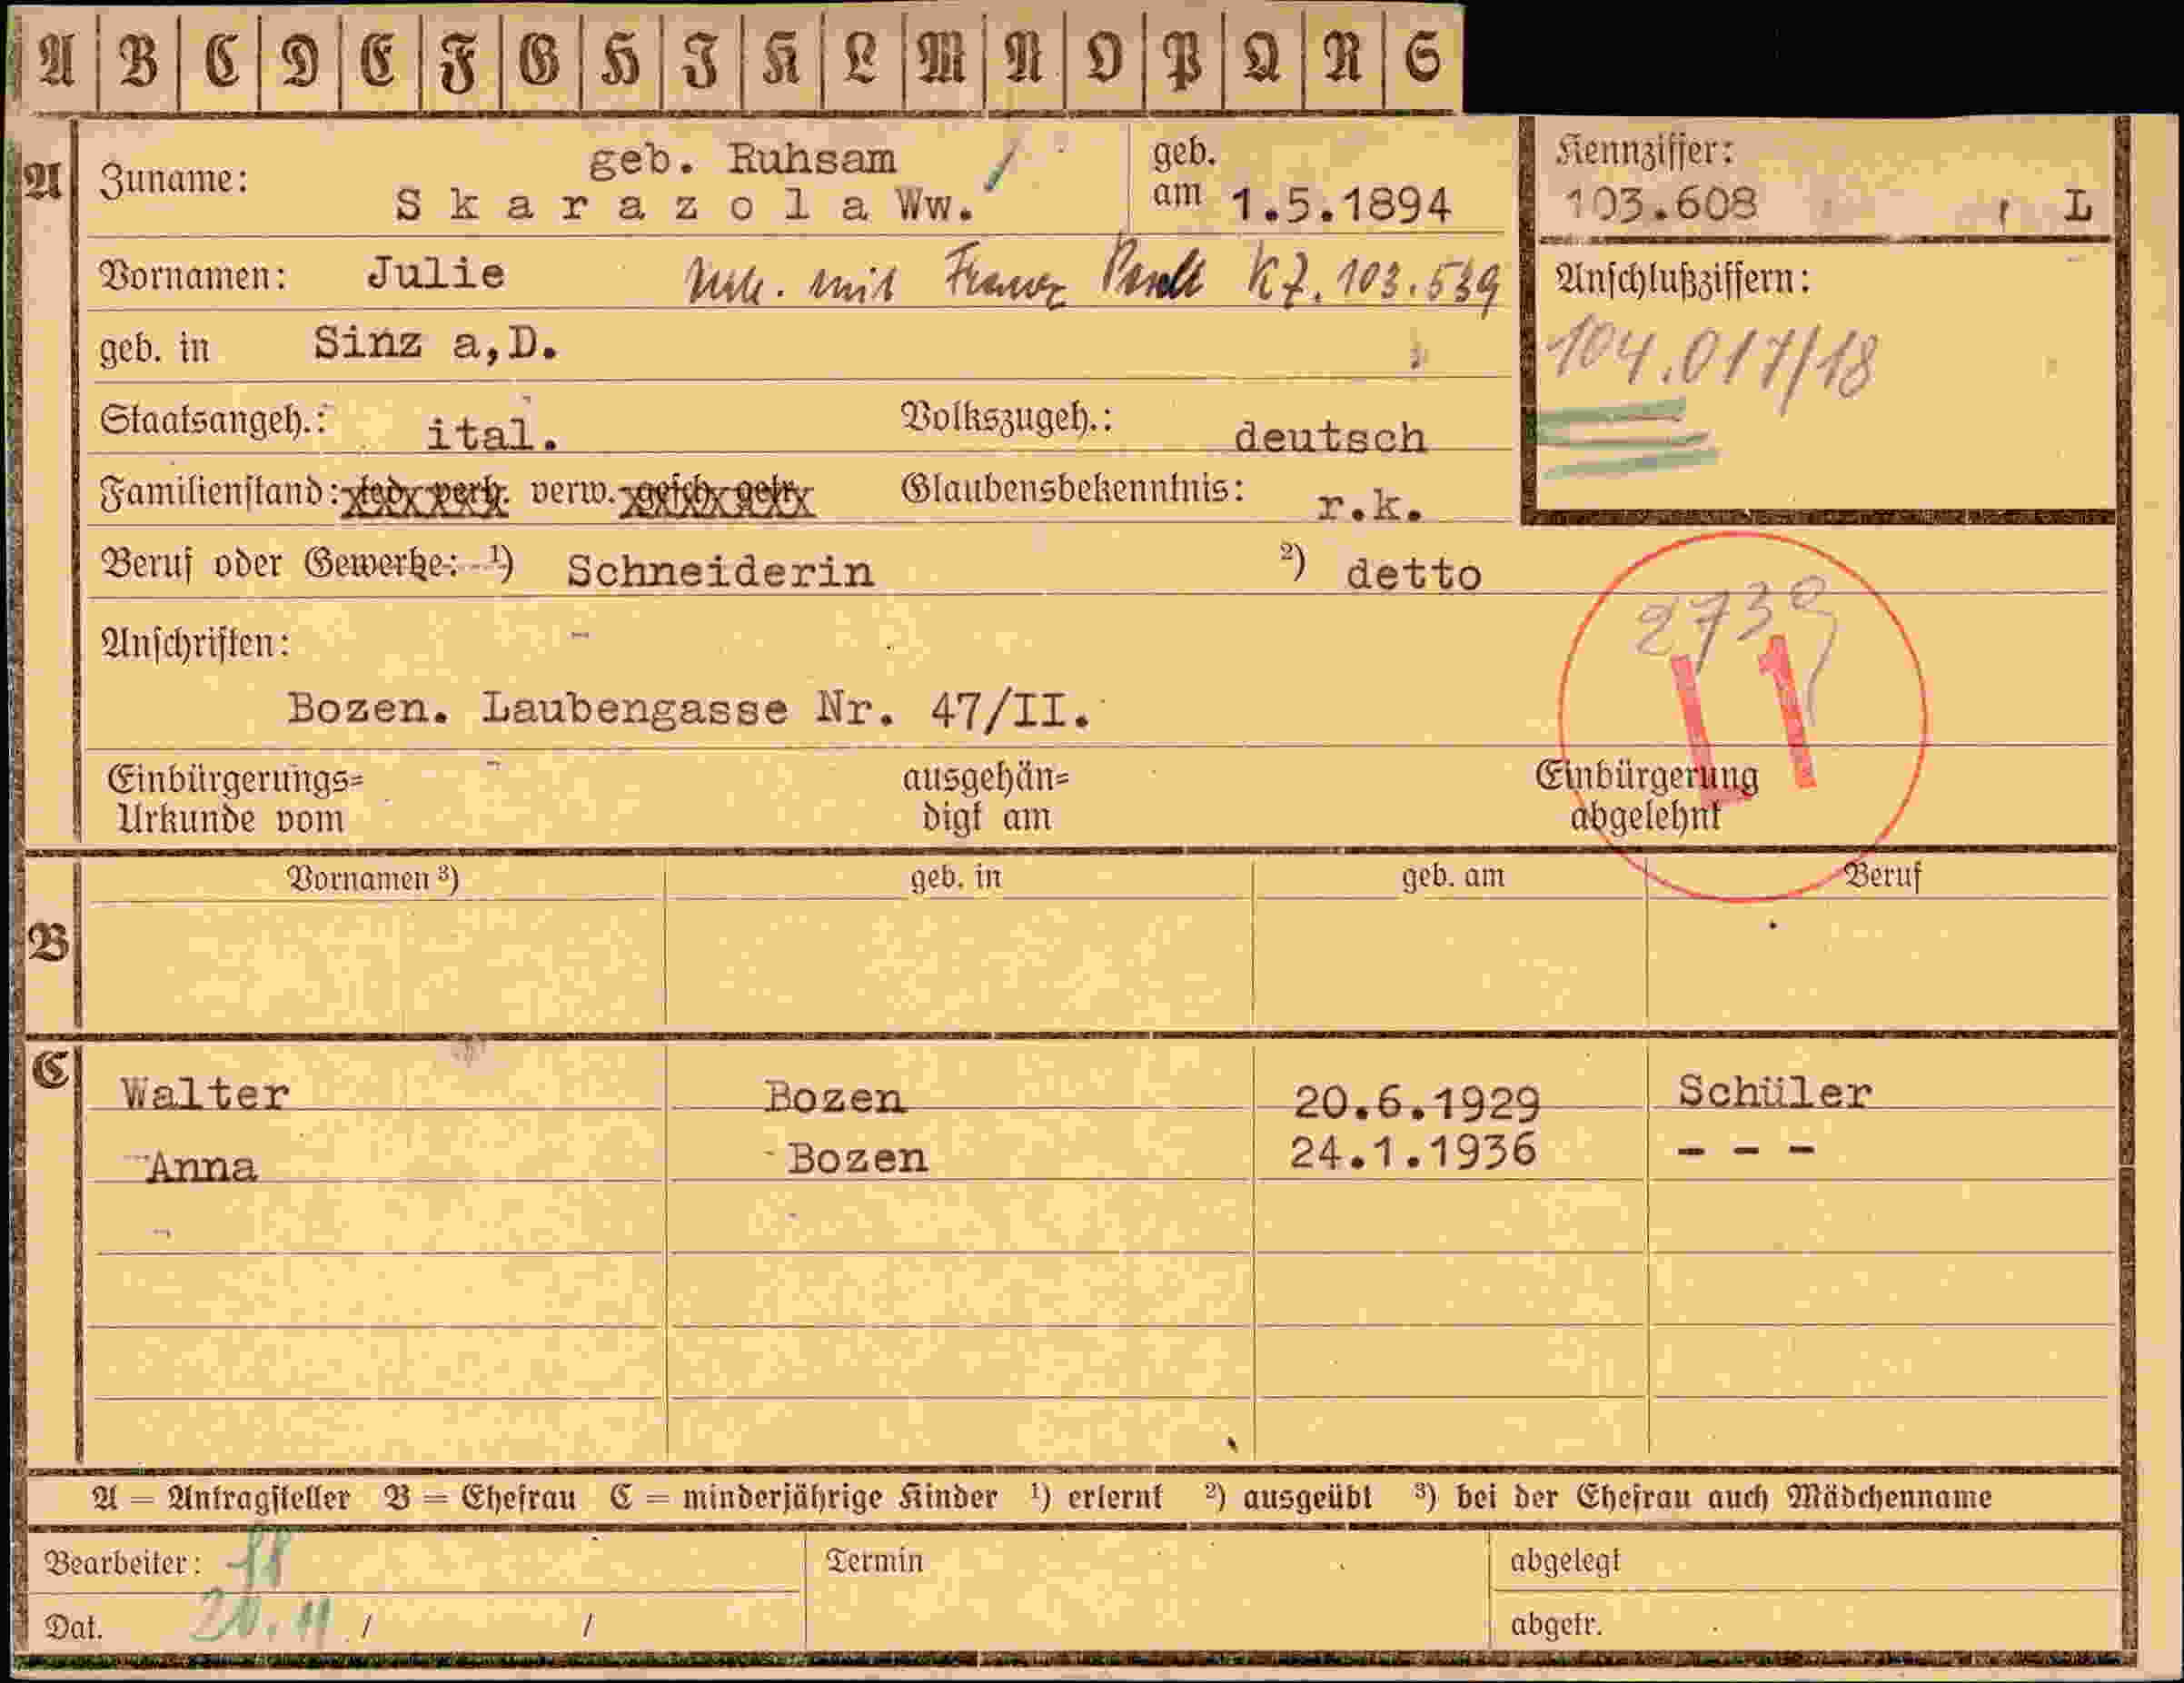 A B C D E F G H I K L M N O P Q R S
A
geb. Ruhsam
Zuname: Skarazola Ww.
geb. am 1.5.1894
Kennziffer:
103.608 L
Vornamen: Julie mit Franz KZ. 103.539
Anschlußziffern:
104.017/18
geb. in Sinz a,D.
Staatsangeh.: ital. Volkszugeh.: deutsch
Familienstand: led. verh. verw. gesch. getr. Glaubensbekenntnis: r.k.
Beruf oder Gewerbe: 1) Schneiderin 2) detto
2739
L1
Anschriften:
Bozen. Laubengasse Nr. 47/II.
Einbürgerungs= ausgehän= Einbürgerung
Urkunde vom digt am abgelehnt
B
Vornamen 3) geb. in geb. am Beruf
C
Walter Bozen 20.6.1929 Schüler
Anna Bozen 24.1.1936 - - -
A = Antragsteller B = Ehefrau C = minderjährige Kinder 1) erlernt 2) ausgeübt 3) bei der Ehefrau auch Mädchenname
Bearbeiter: Termin abgelegt
Dat. / / abgetr.